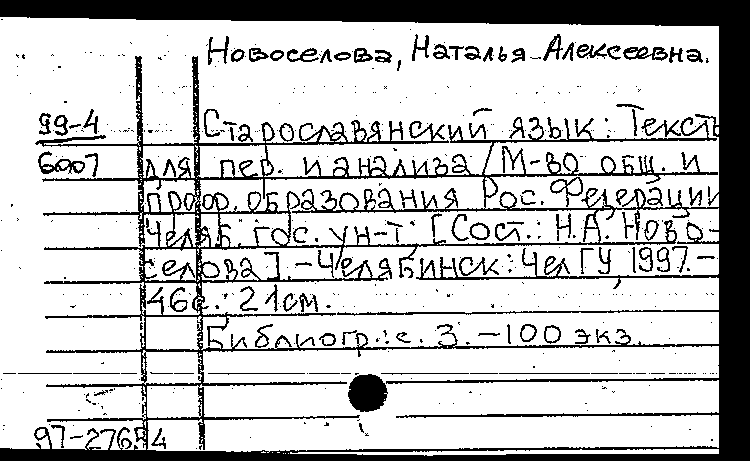 Новоселова, Наталья Алексеевна.
99-4 Старославянский язык: Тексты
6007 для пер. и анализа / М-во общ. и
проф. образования Рос. Федерации
Челяб. гос. ун-т; [Сост.: Н.А. Ново-
селова]. - Челябинск: ЧелГУ, 1997. -
46с.; 21см.
Библиогр.: с. 3. - 100 экз.
97-27654